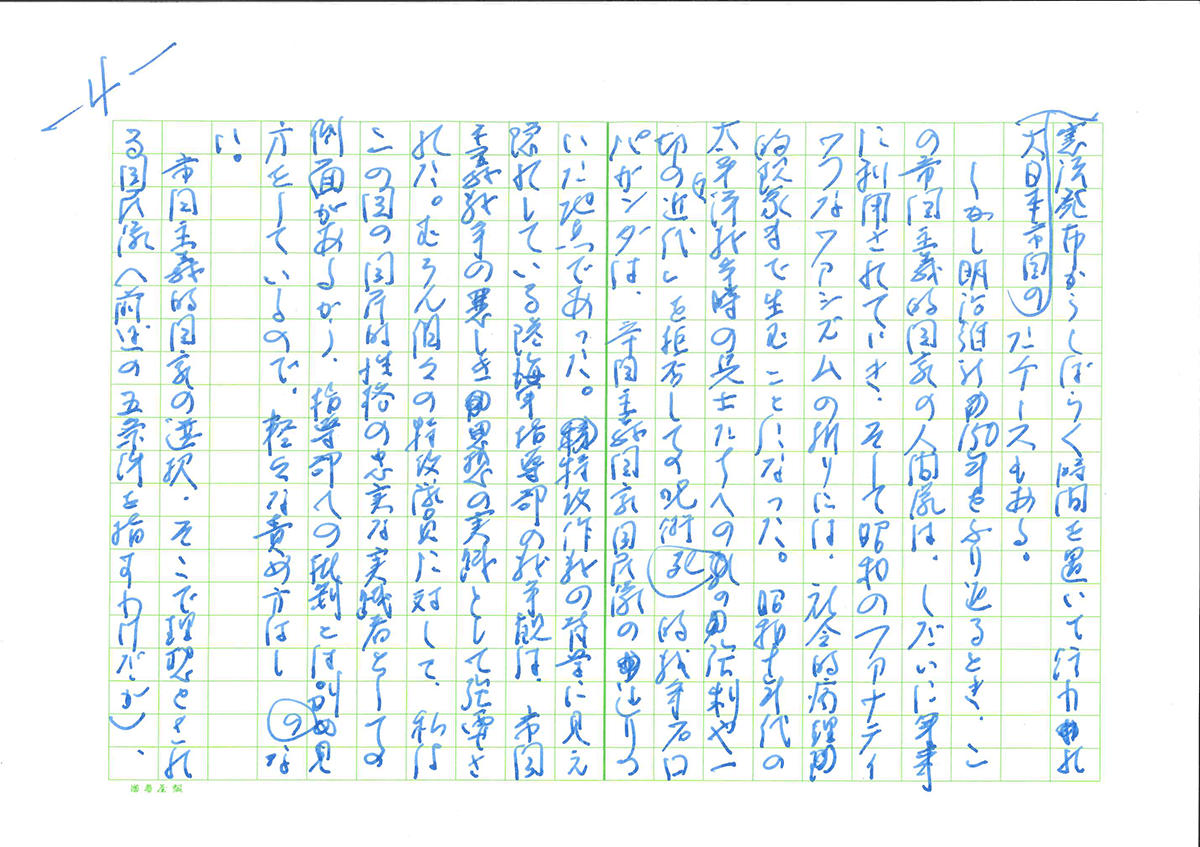 －4－
憲法発布からしばらく時間を置いて注力され
(大日本帝国の)たケースもある。
しかし明治維新の功罪をふり返るとき、こ
の帝国主義的国家の人間像は、しだいに軍事
に利用されてにき、そして昭和のファナティ
ックなファシズムの折りには、社会的病理
的現象まで生むことになった。昭和十年代の
太平洋戦争時の兵士たちへの死の強制や、一
切の「近代」を拒否しての呪術的戦争プロ
パガンダは、帝国主義国家国民像の辿りつ
いた地点であった。特攻作戦の背景に見え
隠れしている陸海軍指導部の戦争観は、帝国
主義戦争の悪しき思想の実践として強要さ
れた。むろん個々の特攻隊員に対して、私は
この国の国家的性格の忠実な実践者としての
側面があるから、指導部への批判とは別の見
方をしているので、軽々な責め方はしな
い。
帝国主義的国家の選択、そこで理想とされ
る国民像(前述の五条件を指すわけだが)、
満寿屋製